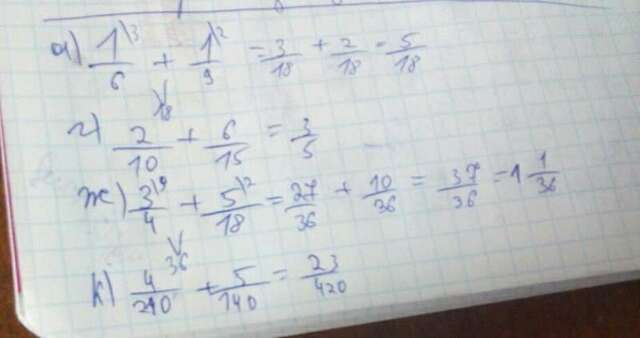 а) 1\3/6 + 1\2/9 = 3/18 + 2/18 = 5/18
18
г) 2/10 + 6/15 = 3/5
ж) 3\9/4 + 5\2/18 = 27/36 + 10/36 = 37/36 = 1 1/36
36
к) 4/210 + 5/140 = 23/420